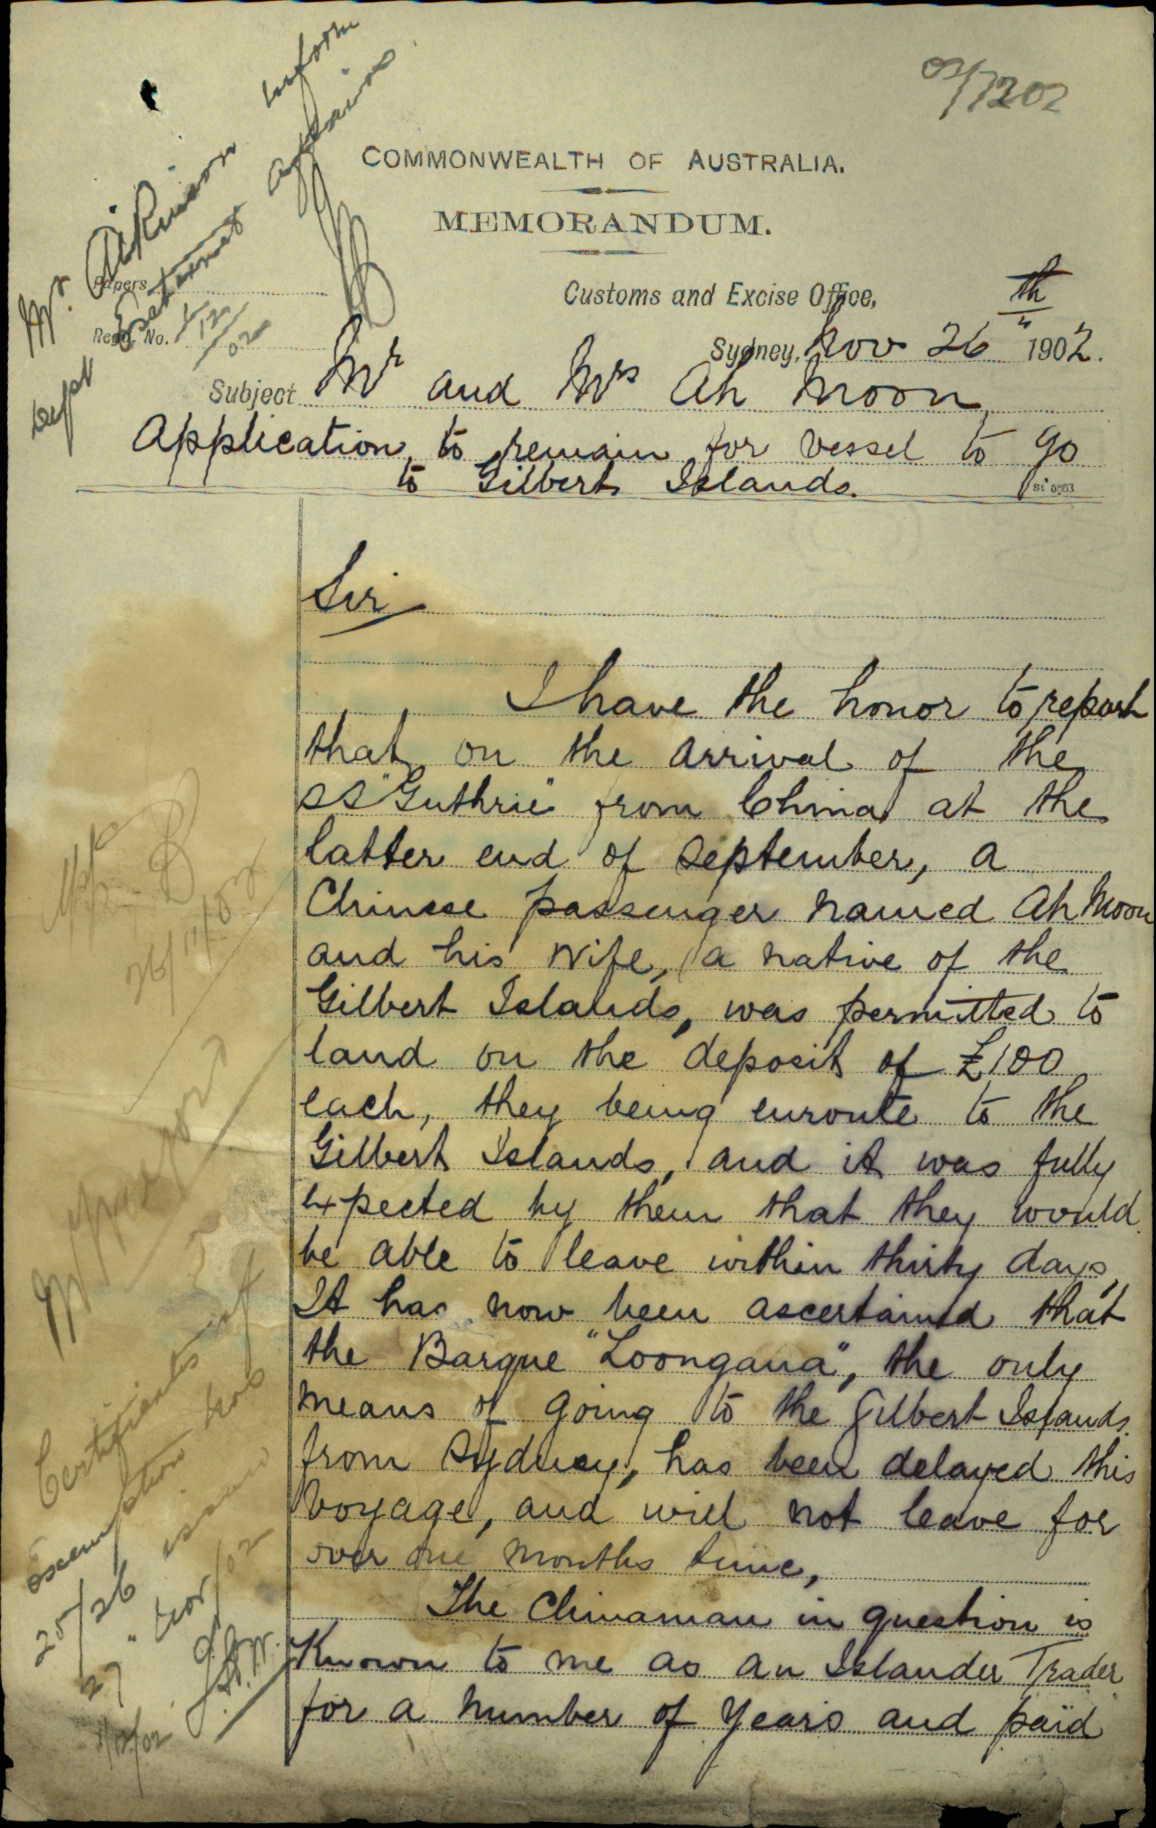 02/7202
Mr. Atkinson inform
Dept External Affairs
COMMONWEALTH OF AUSTRALIA.
MEMORANDUM.
Papers
Customs and Excise Office,
Regd. No.
1/12/02
Sydney, Nov 26th 1902.
Subject Mr and Mrs Ah Moon
Application to remain for vessel to go
to Gilbert Islands.
Sir
I have the honor to report
that on the arrival of the
SS "Guthrie" from China at the
latter end of September, a
Chinese passenger named Ah Moon
and his wife, a native of the
Gilbert Islands, was permitted to
land on the deposit of £100
each, they being enroute to the
Gilbert Islands, and it was fully
expected by them that they would
be able to leave within thirty days,
It has now been ascertained that
the Barque "Loongana", the only
means of going to the Gilbert Islands
from Sydney, has been delayed this
voyage, and will not leave for
over one months time,
The Chinaman in question is
Known to me as an Islander Trader
for a number of years and paid
26/11/02
Certificates of
exemption Nos
25/26 issued
27 Nov/02
1/12/02